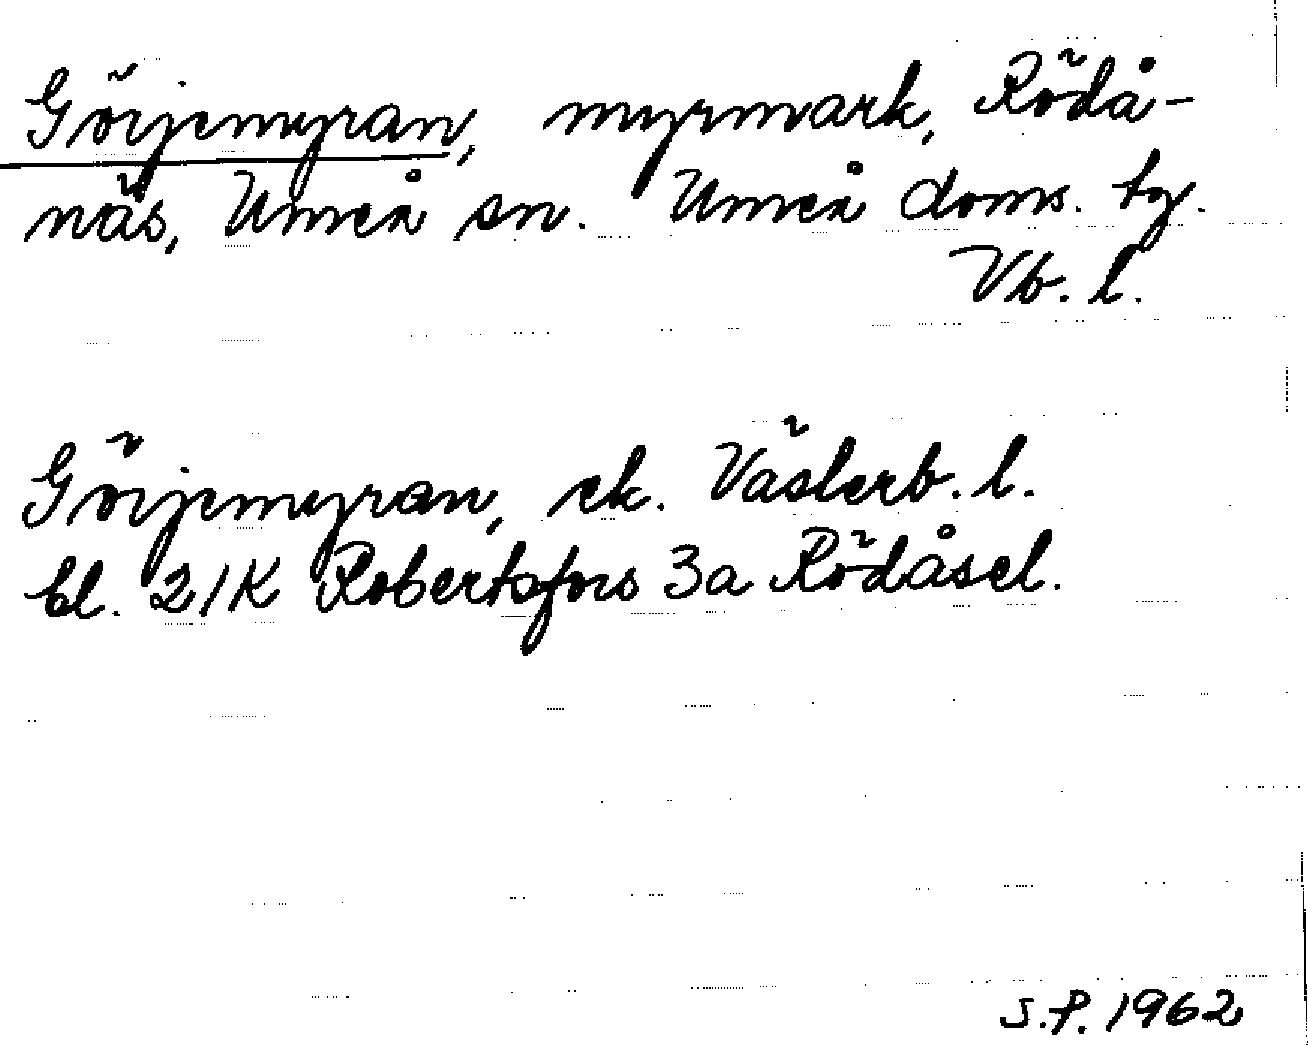 Görjemyran, myrmark, Rödå-
näs, Umeå sn. Umeå doms. tg.
Vb. l.
Görjemyran, ek. Västerb. l.
bl. 21K Robertsfors 3a Rödåsel.
S.P. 1962